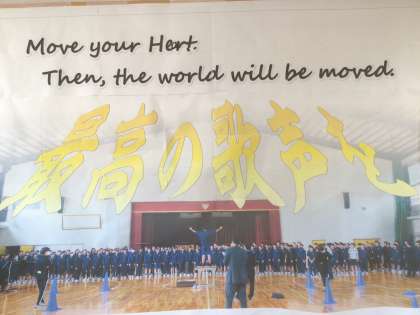 Move your Hert.
Then, the world will be moved.
最高の歌声を